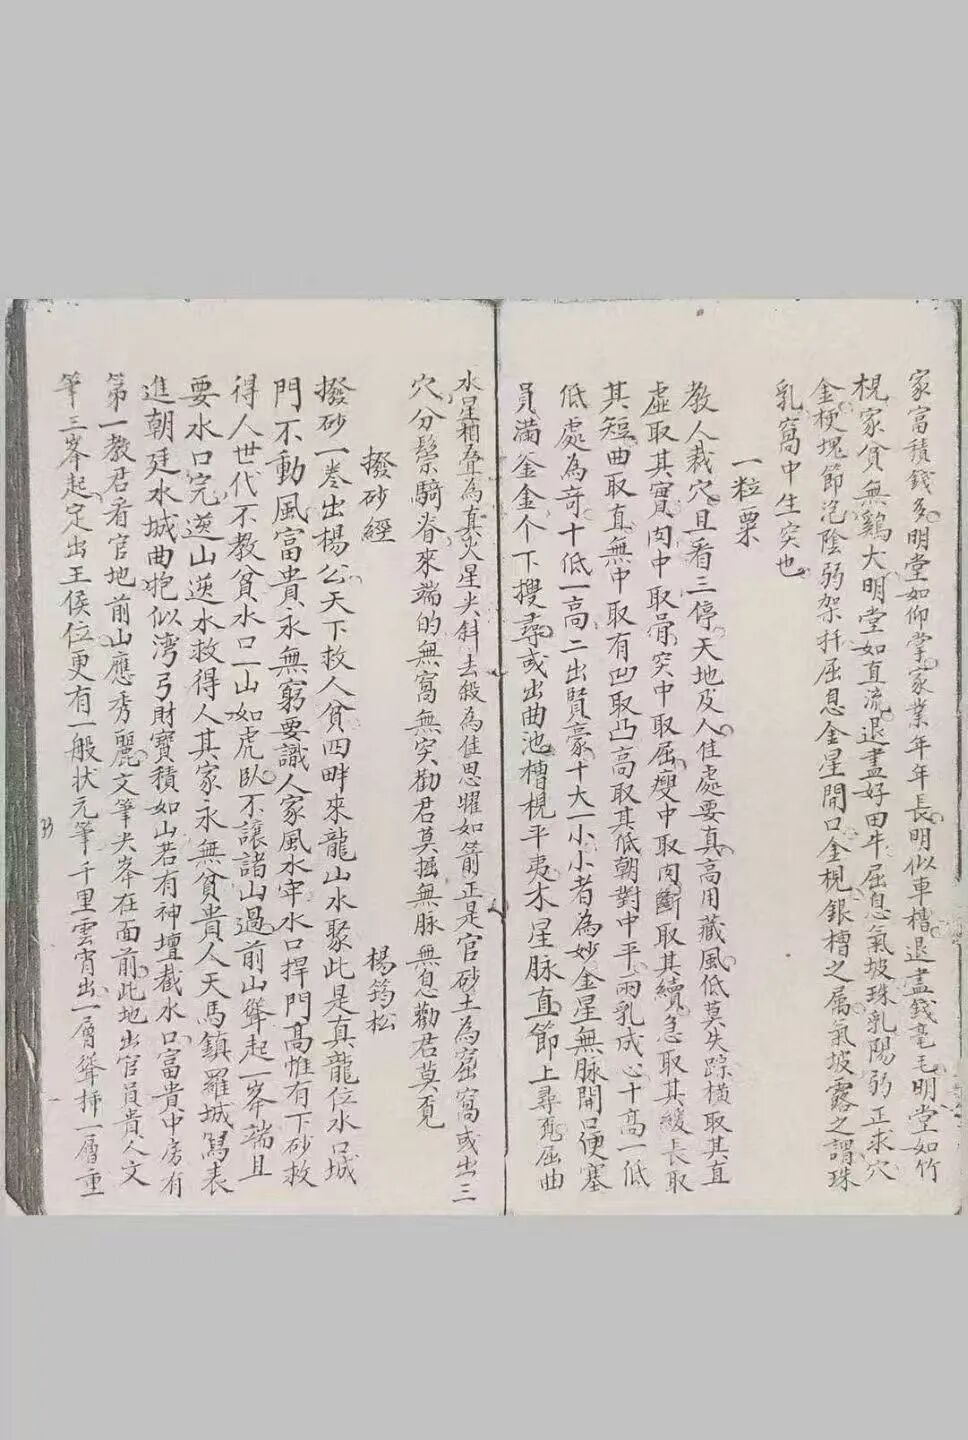 家富積錢多明堂如仰掌家業年年長明似車槽退盡錢毫毛明堂如竹
梘家貧無鷄犬明堂如直流退盡好田牛屈息氣坡珠乳陽弱正求穴
金梗塊節泡陰弱架折屈息金星開口金梘銀槽之属氣坡露之謂珠
乳窩中生突也
一粒粟
教人裁穴且看三停天地及人隹處要真高用藏風低莫失踪橫取其直
虛取其實肉中取骨突中取屈瘦中取肉斷取其續急取其緩長取
其短曲取直無中取有凹取凸高取其低朝對中平兩乳成心十高一低
低處為奇十低一高二出賢豪十大一小小者為妙金星無脉開口便塞
員滿釜金个下搜尋或出曲池槽梘平夷木星脉直節上尋死屈曲
水星相疊為真火星尖斜去殺為佳思曜如箭正是官砂土為窟窩或出三
穴分鬃騎脊來端的無窩無突勸君莫掘無脉無息勸君莫覓
撥砂經 楊筠松
撥砂一巻出楊公天下救人貧四畔來龍山水聚此是真龍位水口城
門不動風富貴永無窮要識人家風水牢水口捍門高惟有下砂救
得人世代不教貧水口一山如虎臥不讓諸山過前山聳起一峯端且
要水口完逆山逆水救得人其家永無貧貴人天馬鎮羅城寫表
進朝廷水城曲抱似湾弓財寶積如山若有神壇截水口富貴中房有
第一教君看官地前山應秀麗文筆尖峯在面前此地出官員貴人文
筆三峯起定出王侯位更有一般状元筆千里雲宵出一層聳揷一層重
33